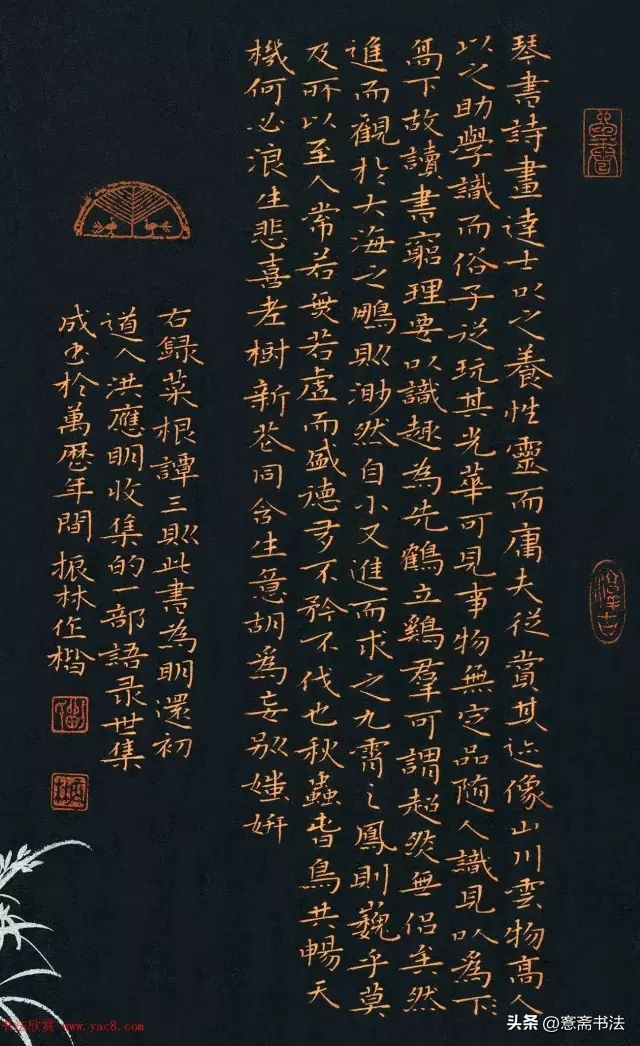 琴書詩畫達士以之養性靈而庸夫從賞其迹像山川雲物高人
以之助學識而俗子從玩其光華可見事物無定品随人識見以為下
高下故讀書窮理要以識趣為先鶴立鷄羣可謂超然無侣矣然
進而觀於大海之鵬則渺然自小又進而求之九霄之鳳則巍乎莫
及所以至人常若無若虚而盛德多不矜不伐也秋蟲春鳥共暢天
機何必浪生悲喜老樹新花同含生意胡為妄别媸妍
右録菜根譚三則此書為明還初
道人洪應明收集的一部語录世集
成书於萬曆年間 振林作楷
书法欣赏 www.yac8.com
头条 @惷斋书法